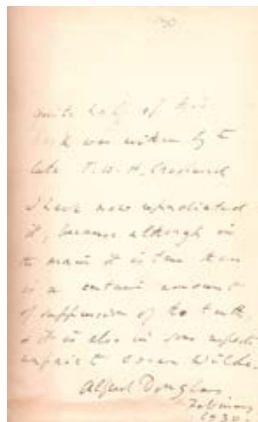 quite half of this
book was written by the
late T. W. H. Crosland
I have now repudiated
it, because although in
the main it is true there
is a certain amount
of suppression of the truth,
& it is also in some respects
unfair to Oscar Wilde.
Alfred Douglas
February
1930